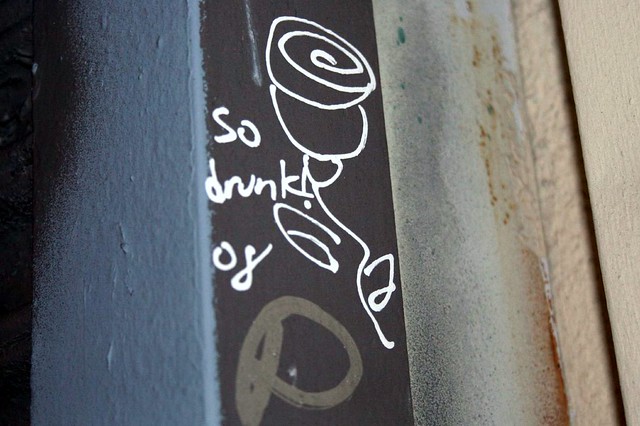 So
drunk!
og